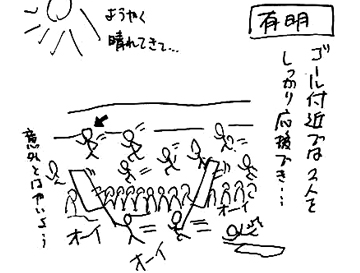 有明
ゴール付近では2人を
しっかり応援でき…
ようやく
晴れてきて…
意外とはやいよ…
オーイ
オーイ
オーイ